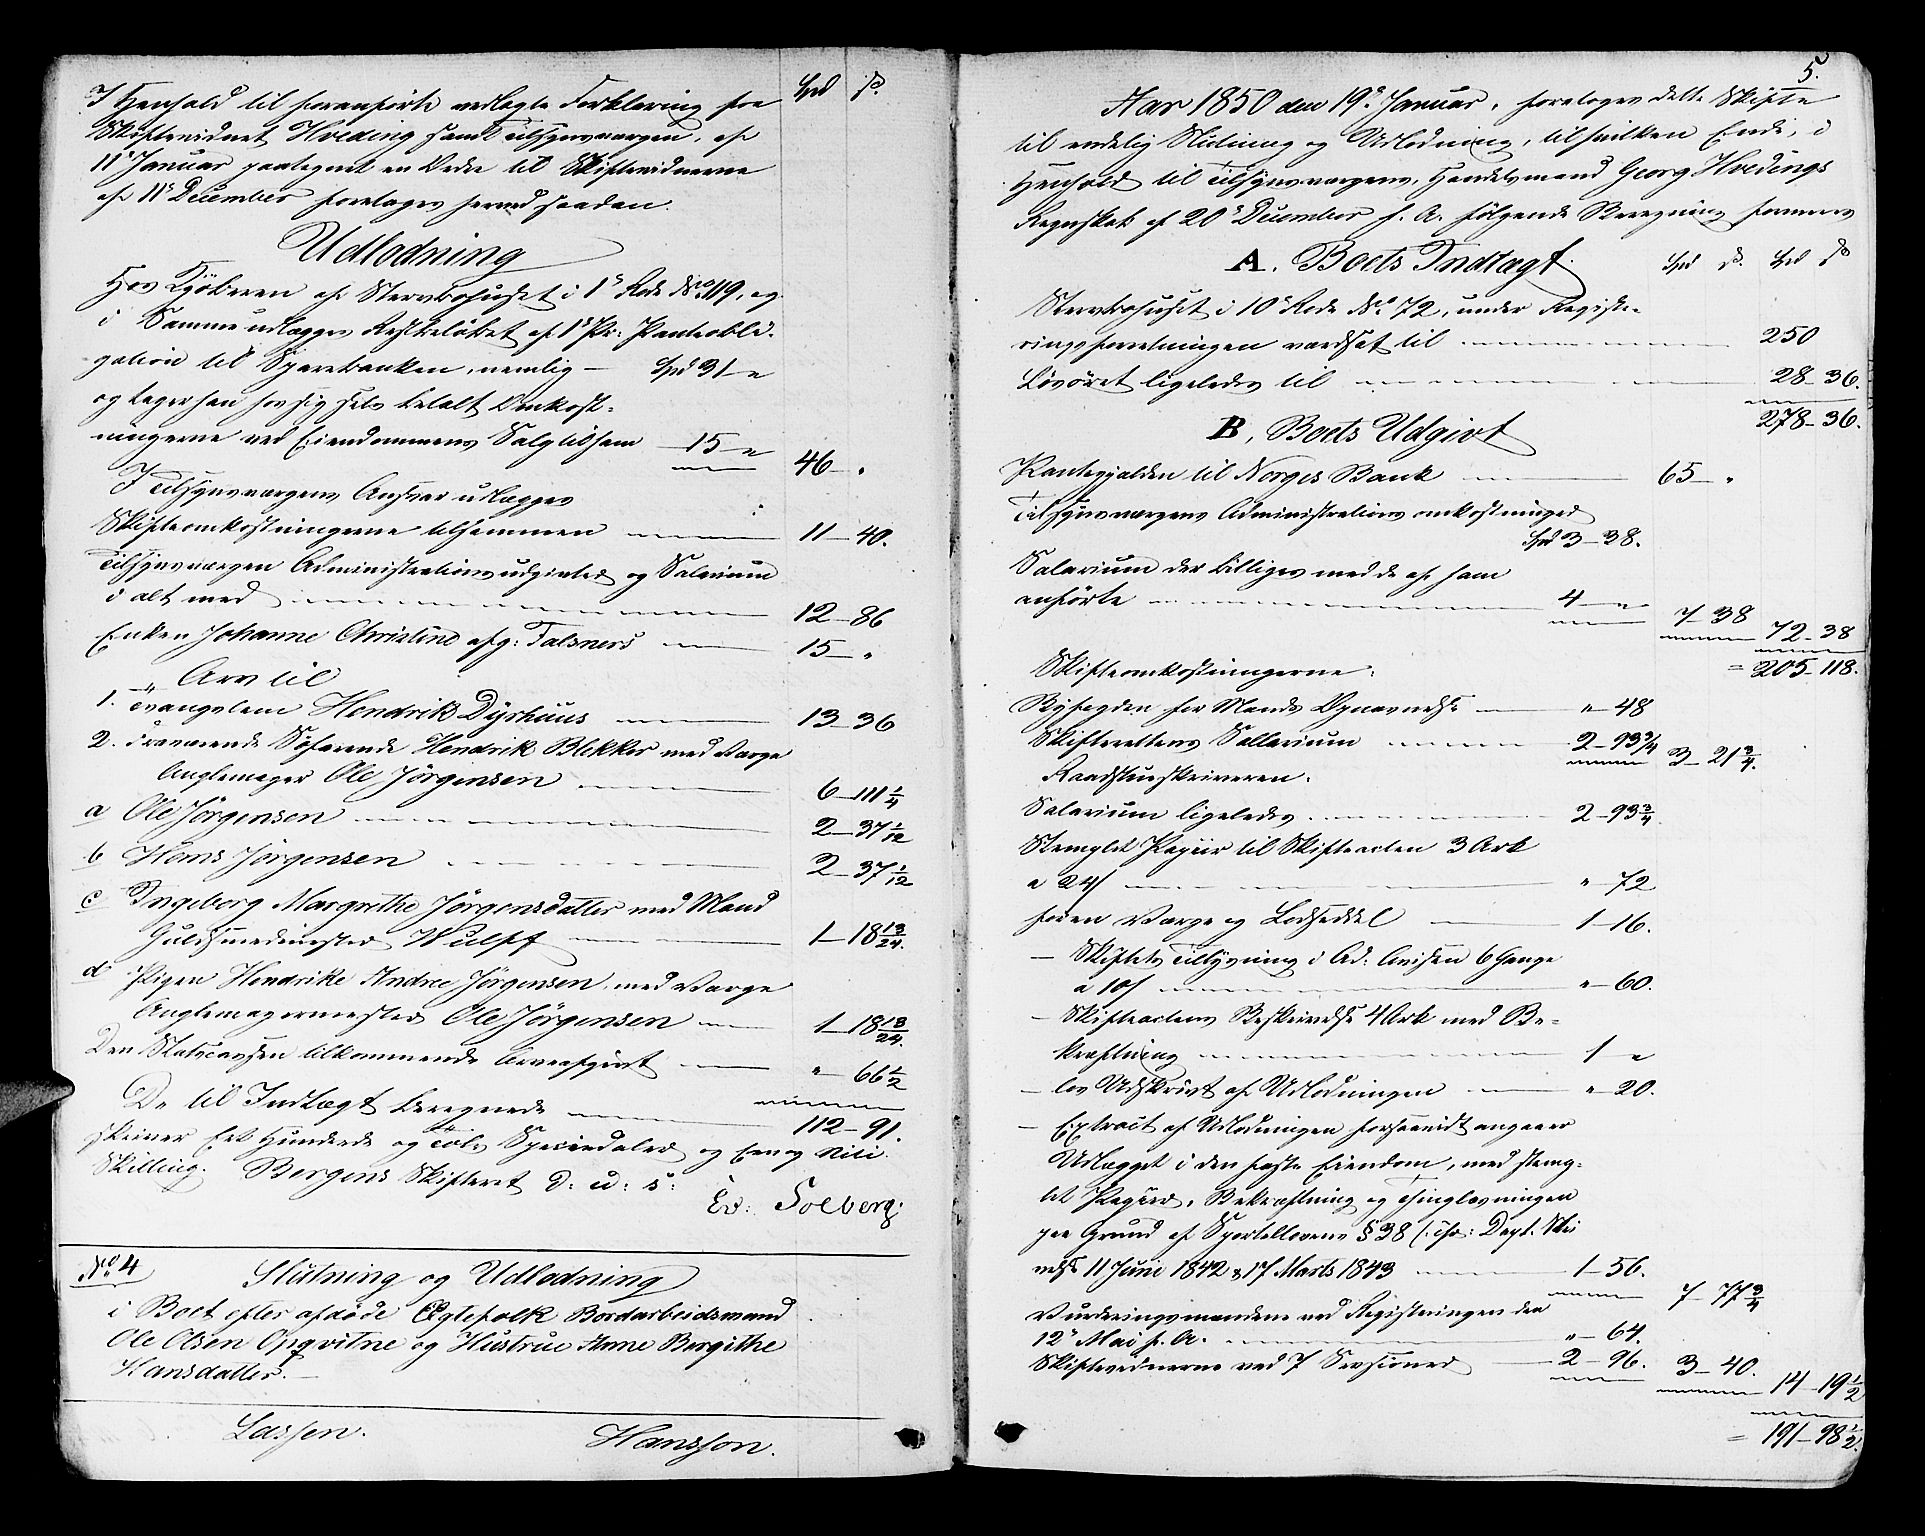 Spd ß.
I Henhold til foranførte vedlagte Forklaring fra
Skiftevidnet Hveding samt Tilsynsværgen, af
11' Januar paategnet en Ordre til Skiftevidnerne
af 11' December foretages herved saadan
Udlodning
Hos Kjøberen af Stervbohuset i 1' Rode No. 119, og
i Samme udlægges Restbeløbet af 1' Pr: Panteobli-
gation til Sparebanken, nemlig — Spd 31 — "
og tager han hos sig selv betalt Omkost-
ningerne ved Eiendommens Salg tilsam 15 — " 46 — "
I Tilsynsværgens Ansvar udlægges
Skifteomkostningerne tilsammen 11 — 40.
Tilsynsværgen Administrationsudgivter og Salarium
i alt med 12 — 86
Enken Johanne Christine afg: Falsners 15 — "
Arv til
1. Svangeleen Hendrik Dyrhuus 13 — 36
2. Fraværende Søfarende Hendrik Blekker med Værge
Anglemager Ole Jörgensen 6 — 111 1/4
a Ole Jörgensen 2 — 37 1/12
b Hans Jörgensen 2 — 37 1/12
c Ingeborg Margrethe Jörgensdatter med Mand
Guldsmedmester Wulff 1 — 18 13/24.
d Pigen Hendrike Andrea Jörgensen, med Værge
Anglemagermester Ole Jörgensen 1 — 18 13/24.
Den Statscassen tilkommende Arveafgivt " — 66 1/2
De til Indtægt beregnede 112 — 91.
skriver Eet Hundrede og Tolv Speciedaler og Een og Niti
Skilling. Bergens Skifteret D: u: s:
Ed: Solberg.
No. 4 Slutning og Udlodning
i Boet efter afdøde Ægtefolk Bordarbeidsmand
Ole Olsen Opqvitne og Hustrue Anne Bergithe
Hansdatter. —
Lassen. Hansson.
5.
Aar 1850 den 19' Januar, foretoges dette Skifte
til endelig Slutning og Udlodning, til hvilken Ende, i
Henhold til Tilsynsværgens, Handelsmand Georg Hvedings
Regnskab af 20' December f. A. følgende Beregning formeres
A. Boets Indtægt. Spd ß. Spd ß
Stervbohuset i 10' Rode No. 72, under Registe-
ringsforretningen værdsat til 250
Løsøret ligeledes til 28 — 36.
278 — 36.
B, Boets Udgivt
Pantegjælden til Norges Bank 65 — "
Tilsynsværgens Administrations omkostninger
Spd 3 — 38.
Salarium der billiges med de af ham
anførte 4 — " 7 — 38 72 — 38
= 205 — 118.
Skifteomkostningerne:
Byfogden for Mands Opnævnelse " — 48
Skifterettens Sallarium 2 — 93 3/4 3 — 21 3/4.
Raadstueskriveren:
Salarium ligeledes 2 — 93 3/4.
Stemplet Papiir til Skifteacten 3 Ark
a 24ß " — 72
for en Værge og Lodseddel 1 — 16.
— Skiftets Tillysning i Ad: Avisen 6 Gange
a 10ß " — 60.
— Skifteactens Beskrivelse 4 Ark med Be-
kræftning 1 — "
— løs Udskrivt af Udlodningen " — 20.
— Extract af Udlodningen forsaavidt angaaer
Udlægget i den faste Eiendom, med stemp-
let Papiir, Bekræftning og Thinglæsningen
paa Grund af Sportellovens § 38 (: cfr: Dept. Skri
velse 11 Juni 1842 & 17 Marts 1843 1 — 56. 7 — 77 3/4
Vurderingsmændene ved Registeringen den
12' Mai f. A. " — 64.
Skiftevidnerne ved 7 Sessioner 2 — 96. 3 — 40. 14 — 19 1/2
= 191 — 98 1/2.